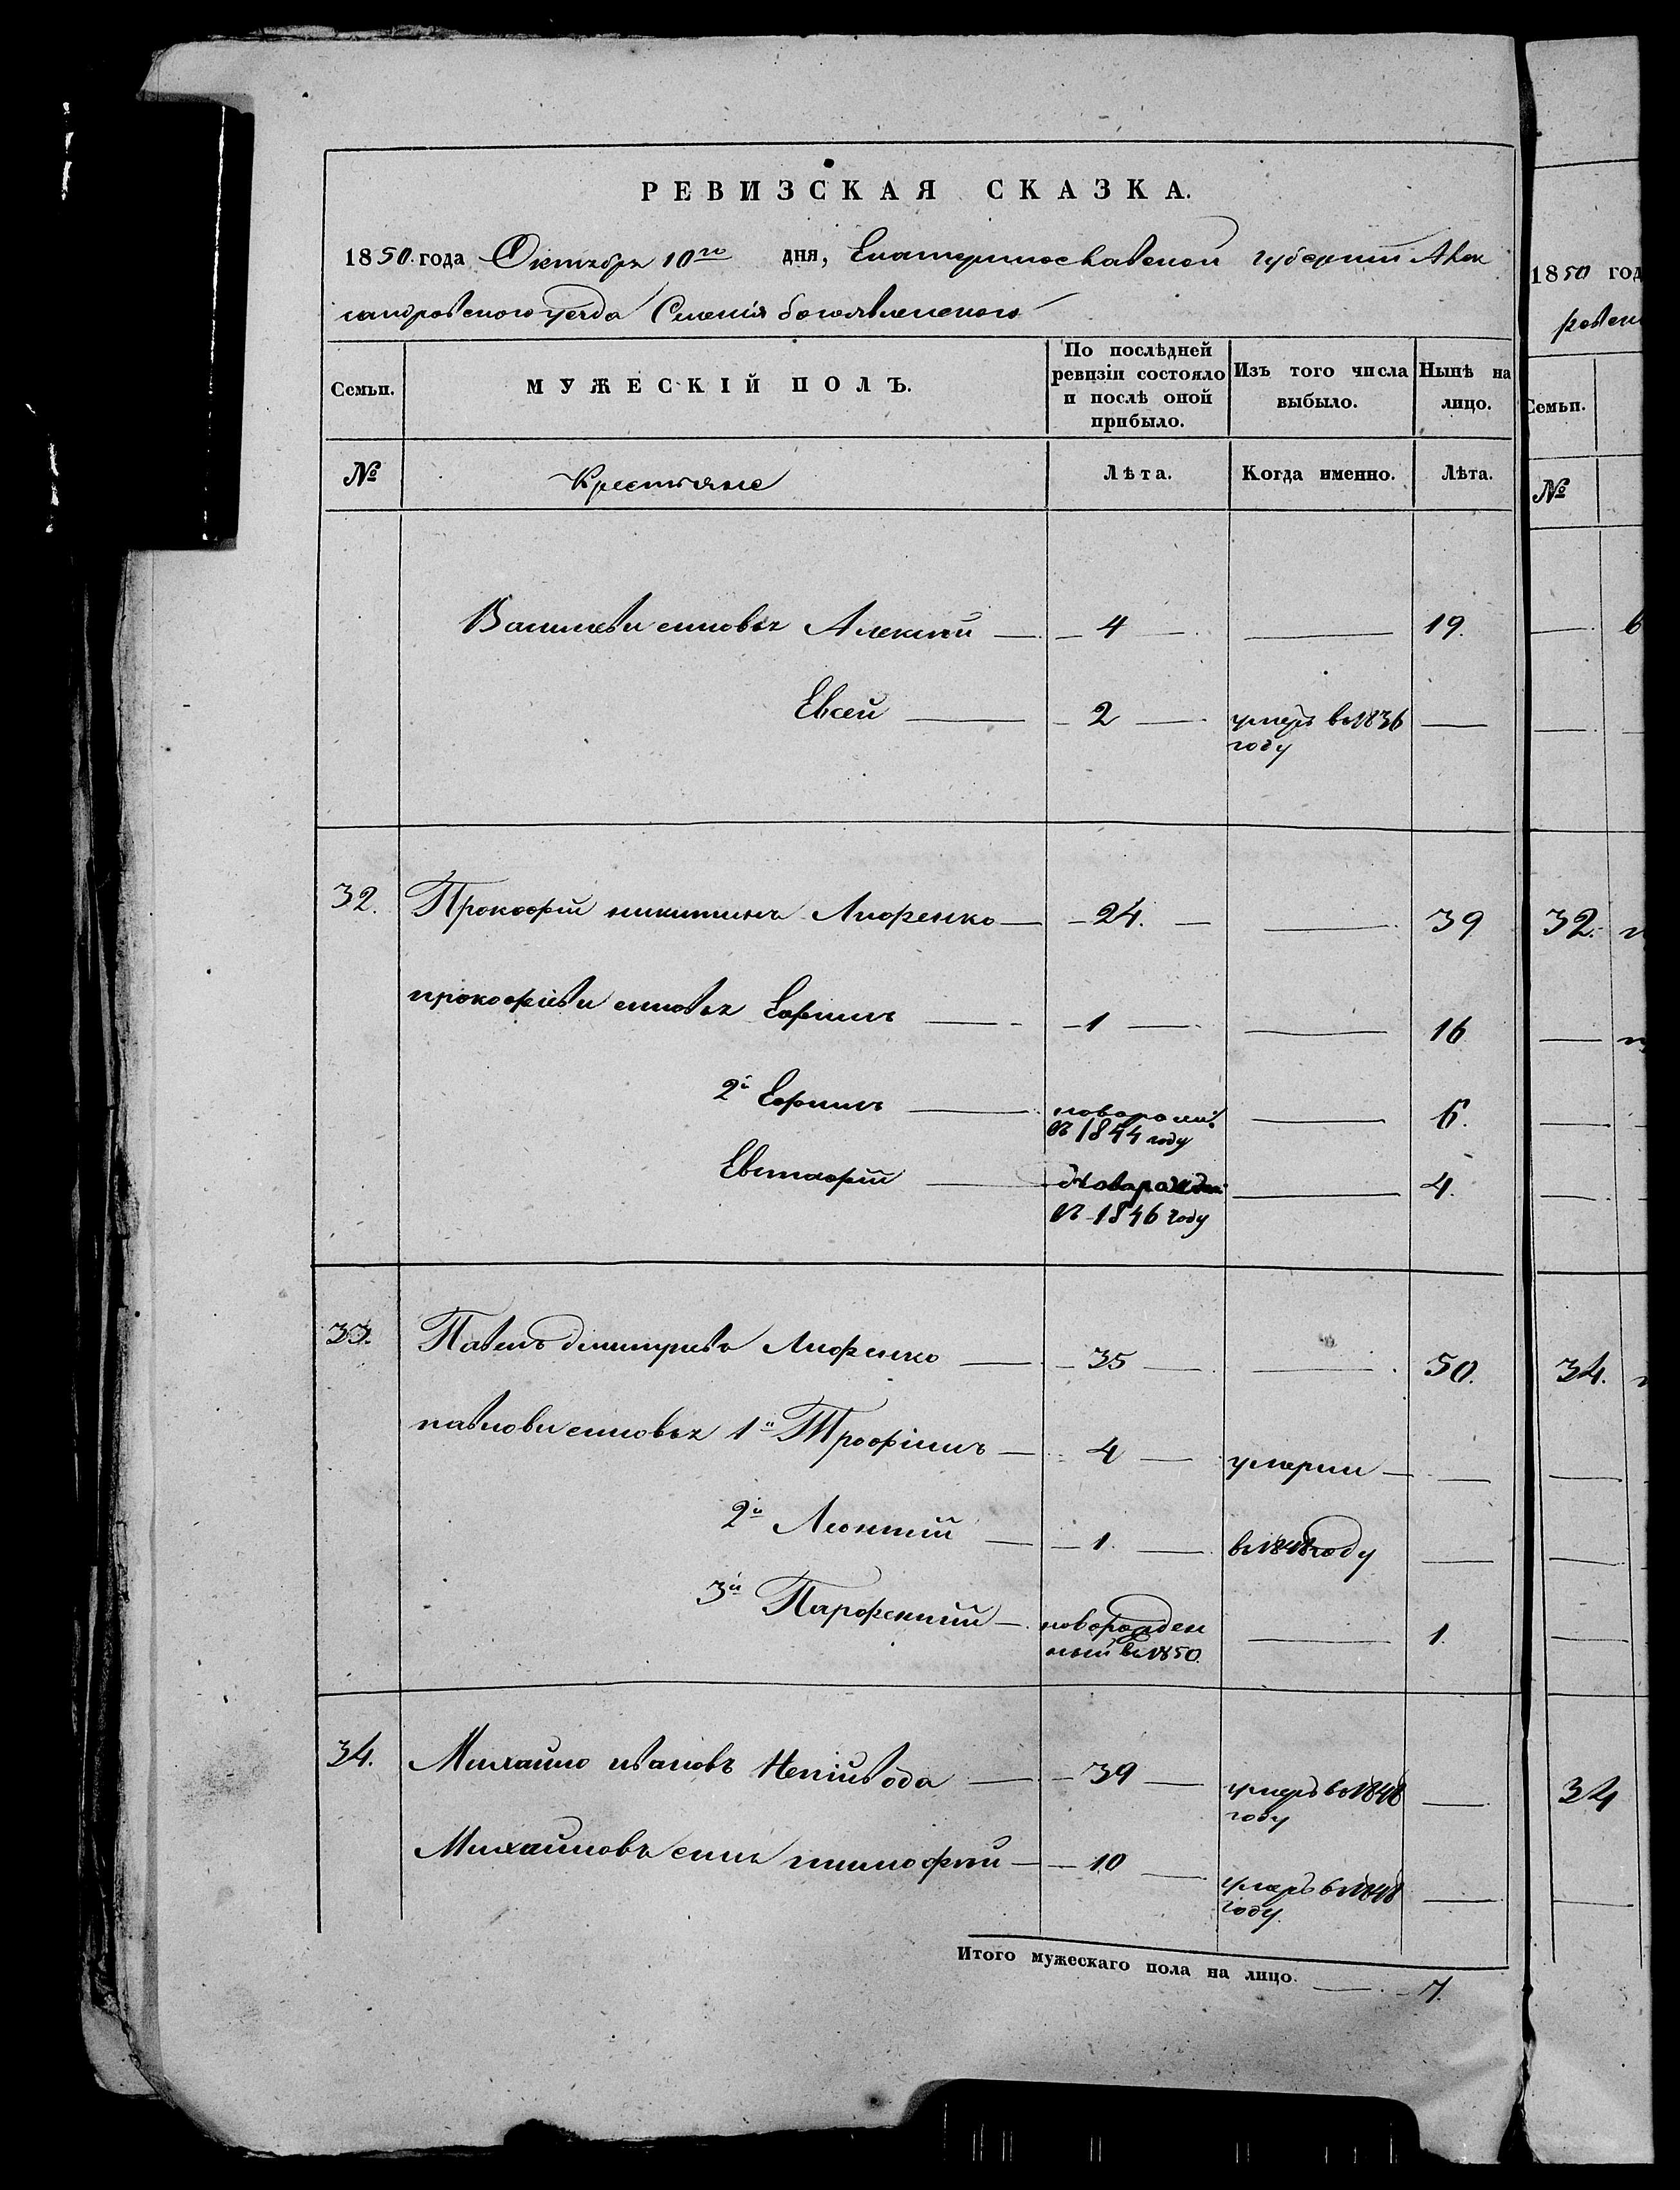 РЕВИЗСКАЯ СКАЗКА.
1850. года Октября 10го дня, Екатеринославской губерніи Алек
сандровскаго уезда Именія богоявленскаго
Семьи.
МУЖЕСКІЙ ПОЛЪ.
По послѣдней ревизіи состояло и послѣ оной прибыло.
Изъ того числа выбыло.
Нынѣ на лицо.
№ Крестьяне Лѣта. Когда именно. Лѣта.
Василіеви синовья Алексѣй — 4 — — 19.
Евсей — 2 — умеръ въ 1836 году —
32. Прокофій никитинъ — 24. — — 39
прокофіеви синовья Ефимъ — 1 — — 16
2й Ефимъ — въ 1844 году — 6.
Евстафій — въ 1846 году — 4.
33. Павелъ дмитриевъ — 35 — — 50.
павлови синовья 1й Трофімъ — 4 — умерли — —
2й Леонтій — 1. — въ 1848 году —
3й Парфентій — новорожден
ный въ 1850. — 1.
34. Михайло ивановъ — 39 — умеръ въ 1848 году —
Михайловъ синъ тимофѣй — 10 — умеръ въ 1848 году. —
Итого мужескаго пола на лицо. — 7.
1850 год
Семьи.
№
32.
34.
34